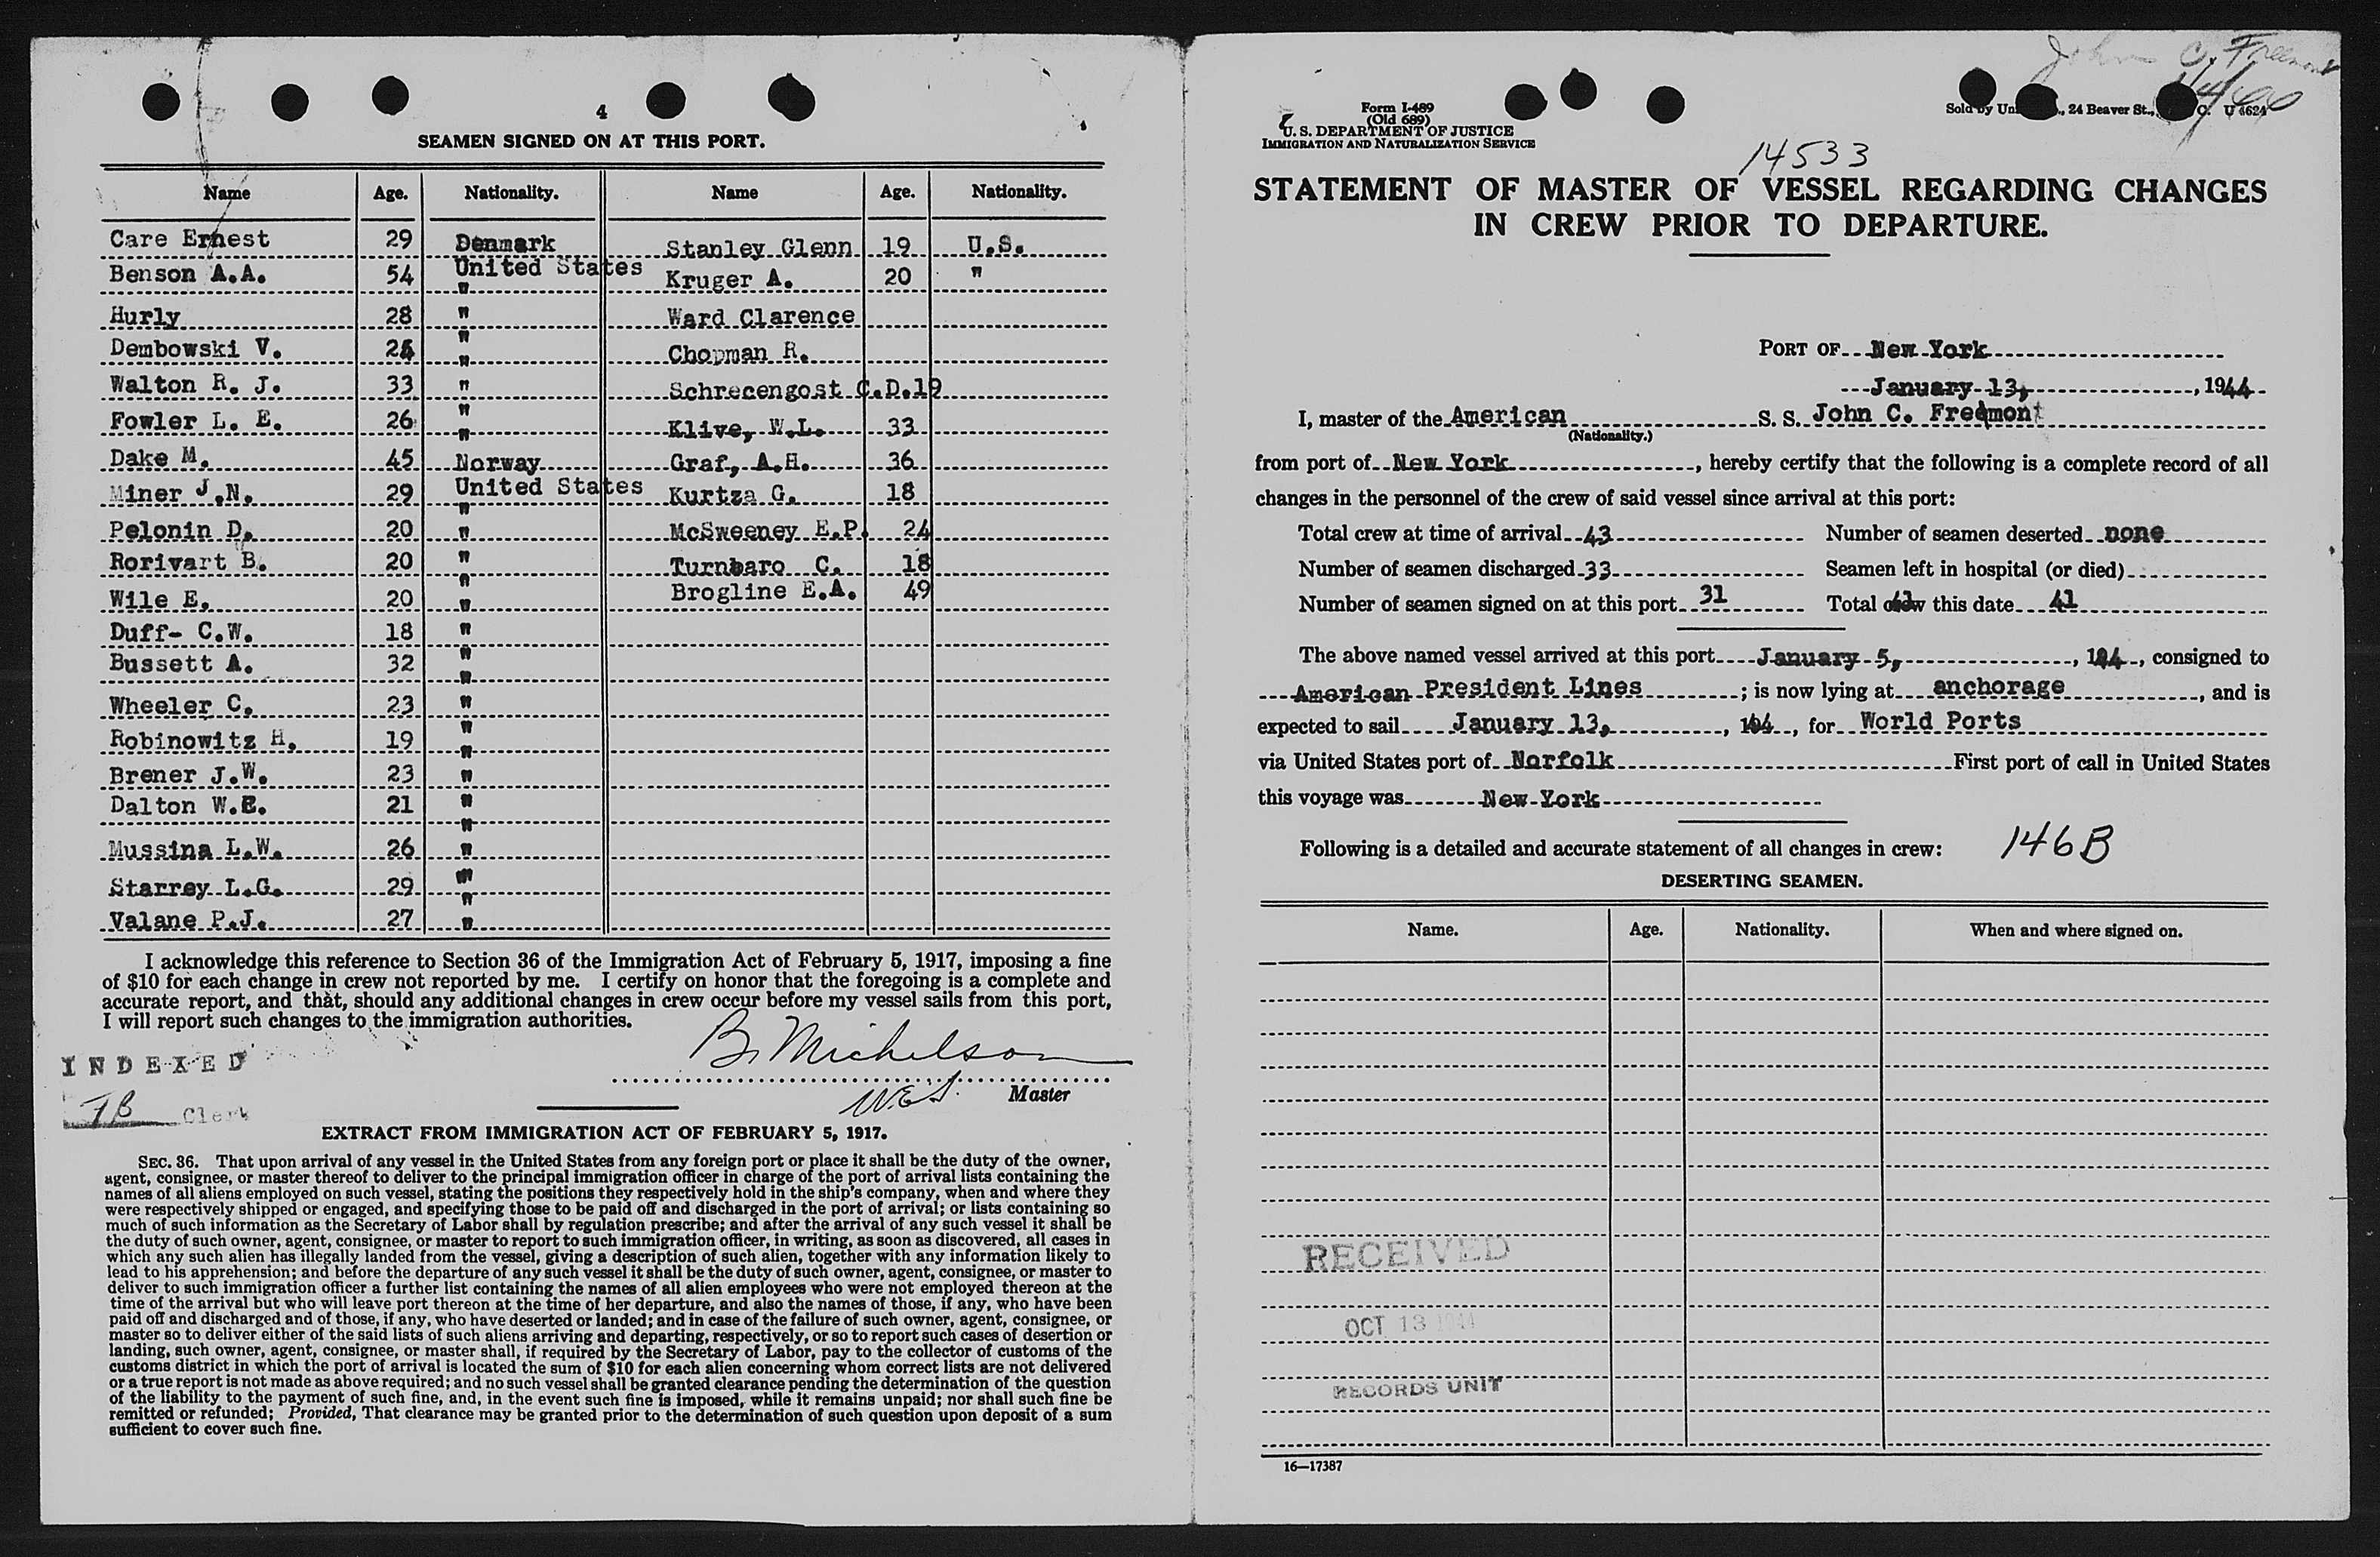 4
SEAMEN SIGNED ON AT THIS PORT.
Name Age. Nationality. Name Age. Nationality.
Care Ernest 29 Denmark Stanley Glenn 19 U.S.
Benson A.A. 54 United States Kruger A. 20 "
Hurly 28 " Ward Clarence
Dembowski V. " Chopman R.
Walton R. J. 33 " Schrecengost C.D.19
Fowler L. E. 26 " Klive, W.L. 33
Dake M. 45 Norway Graf, A.H. 36
Miner J.N. 29 United States Kurtza G. 18
Pelonin D. 20 " McSweeney E.P. 24
Rorivart B. 20 " Turnbaro C. 18
Wile E. 20 " Brogline E.A. 49
Duff- C.W. 18 "
Bussett A. 32 "
Wheeler C. 23 "
Robinowitz H. 19 "
Brener J.W. 23 "
Dalton W.E. 21 "
Mussina L.W. 26 "
Starrey L.G. 29 "
Valane P.J. 27 "
I acknowledge this reference to Section 36 of the Immigration Act of February 5, 1917, imposing a fine
of $10 for each change in crew not reported by me. I certify on honor that the foregoing is a complete and
accurate report, and that, should any additional changes in crew occur before my vessel sails from this port,
I will report such changes to the immigration authorities.
B. Michelson
INDEXED
W.E.S. Master
FB Clerk
EXTRACT FROM IMMIGRATION ACT OF FEBRUARY 5, 1917.
SEC. 36. That upon arrival of any vessel in the United States from any foreign port or place it shall be the duty of the owner,
agent, consignee, or master thereof to deliver to the principal immigration officer in charge of the port of arrival lists containing the
names of all aliens employed on such vessel, stating the positions they respectively hold in the ship's company, when and where they
were respectively shipped or engaged, and specifying those to be paid off and discharged in the port of arrival; or lists containing so
much of such information as the Secretary of Labor shall by regulation prescribe; and after the arrival of any such vessel it shall be
the duty of such owner, agent, consignee, or master to report to such immigration officer, in writing, as soon as discovered, all cases in
which any such alien has illegally landed from the vessel, giving a description of such alien, together with any information likely to
lead to his apprehension; and before the departure of any such vessel it shall be the duty of such owner, agent, consignee, or master to
deliver to such immigration officer a further list containing the names of all alien employees who were not employed thereon at the
time of the arrival but who will leave port thereon at the time of her departure, and also the names of those, if any, who have been
paid off and discharged and of those, if any, who have deserted or landed; and in case of the failure of such owner, agent, consignee, or
master so to deliver either of the said lists of such aliens arriving and departing, respectively, or so to report such cases of desertion or
landing, such owner, agent, consignee, or master shall, if required by the Secretary of Labor, pay to the collector of customs of the
customs district in which the port of arrival is located the sum of $10 for each alien concerning whom correct lists are not delivered
or a true report is not made as above required; and no such vessel shall be granted clearance pending the determination of the question
of the liability to the payment of such fine, and, in the event such fine is imposed, while it remains unpaid; nor shall such fine be
remitted or refunded; Provided, That clearance may be granted prior to the determination of such question upon deposit of a sum
sufficient to cover such fine.
John C. Freemont
Form I-489
(Old 689)
U. S. DEPARTMENT OF JUSTICE
IMMIGRATION AND NATURALIZATION SERVICE
Sold by 24 Beaver St., U 4624
14533
STATEMENT OF MASTER OF VESSEL REGARDING CHANGES
IN CREW PRIOR TO DEPARTURE.
PORT OF New York
January 13, , 1944
I, master of the American S. S. John C. Freemont
(Nationality.)
from port of New York , hereby certify that the following is a complete record of all
changes in the personnel of the crew of said vessel since arrival at this port:
Total crew at time of arrival 43 Number of seamen deserted none
Number of seamen discharged 33 Seamen left in hospital (or died)
Number of seamen signed on at this port 31 Total crew this date 41
The above named vessel arrived at this port January 5, , 194 , consigned to
American President Lines ; is now lying at anchorage , and is
expected to sail January 13, , 194 , for World Ports
via United States port of Norfolk First port of call in United States
this voyage was New York
Following is a detailed and accurate statement of all changes in crew: 146B
DESERTING SEAMEN.
Name. Age. Nationality. When and where signed on.
RECEIVED
OCT 13 1944
RECORDS UNIT
16—17387